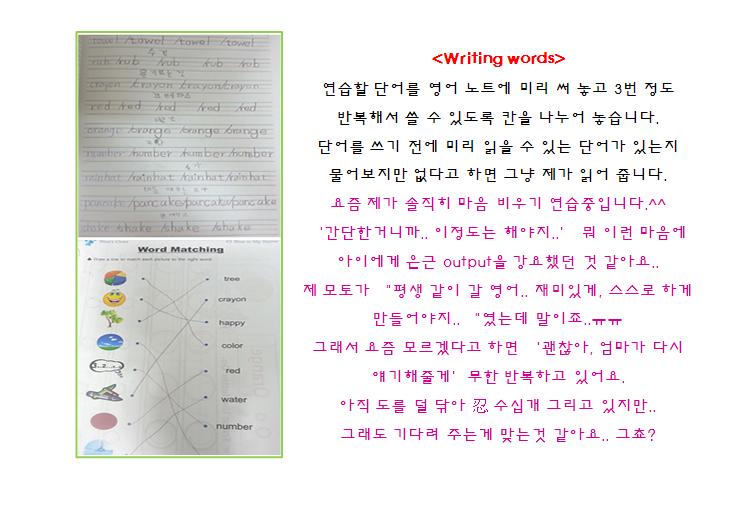 towel /towel /towel /towel
수건
rub /rub /rub /rub
crayon /crayon /crayon /crayon
크레파스
red /red /red /red
빨간
orange /orange /orange /orange
number /number /number /number
숫자
rainhat /rainhat /rainhat /rainhat
pancake /pancake /pancake /pancake
팬케이크
shake /shake /shake /shake
Word Matching
Draw a line to match each picture to the right word.
tree
crayon
happy
color
1, 2, 3...
red
water
number
<Writing words>
연습할 단어를 영어 노트에 미리 써 놓고 3번 정도
반복해서 쓸 수 있도록 칸을 나누어 놓습니다.
단어를 쓰기 전에 미리 읽을 수 있는 단어가 있는지
물어보지만 없다고 하면 그냥 제가 읽어 줍니다.
요즘 제가 솔직히 마음 비우기 연습중입니다.^^
'간단한거니까.. 이정도는 해야지..' 뭐 이런 마음에
아이에게 은근 output을 강요했던 것 같아요..
제 모토가 "평생 같이 갈 영어.. 재미있게, 스스로 하게
만들어야지.. "였는데 말이죠..ㅠㅠ
그래서 요즘 모르겠다고 하면 '괜찮아, 엄마가 다시
얘기해줄게' 무한 반복하고 있어요.
아직 도를 덜 닦아 忍 수십개 그리고 있지만..
그래도 기다려 주는게 맞는것 같아요.. 그쵸?